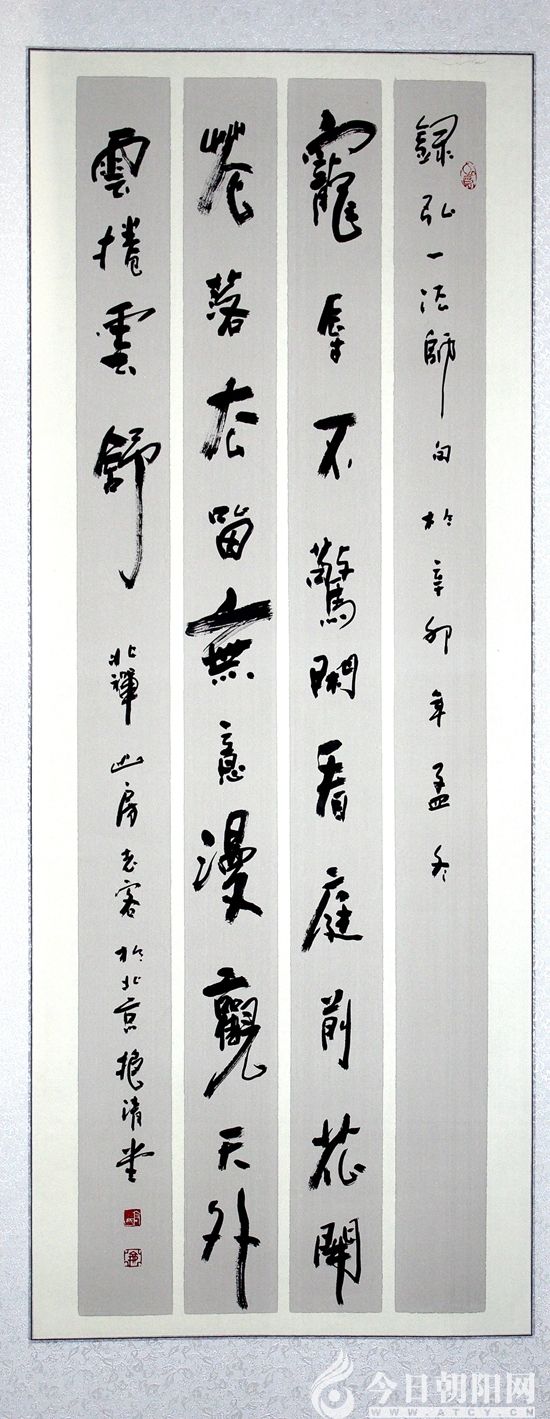 錄弘一法師句於辛卯年孟冬
寵辱不驚閑看庭前花開
花落去留無意漫觀天外
雲捲雲舒
北禪山房老客於北京清堂
今日朝阳网
WWW.ATCY.CN